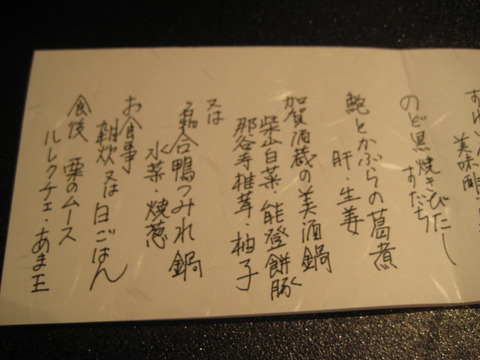 美味酢
のど黒焼きびたし
すだち
鮑とかぶらの葛煮
肝・生姜
加賀酒蔵の美酒鍋
柴山白菜 能登餅豚
那谷寺椎茸・柚子
又は
合鴨つみれ鍋
水菜・焼葱
お食事
雑炊 又は 白ごはん
食後 栗のムース
ルレクチェ・あま王